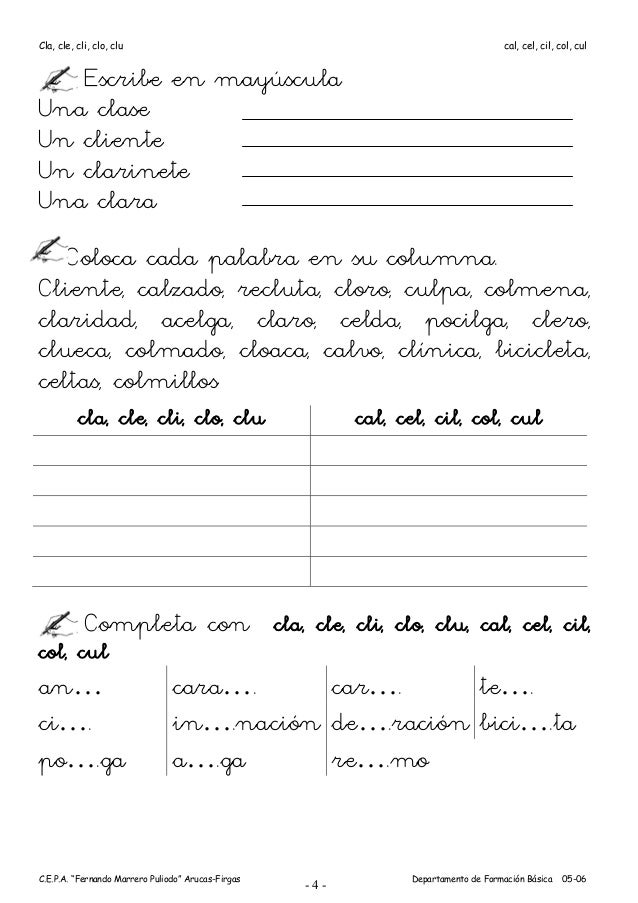 Cla, cle, cli, clo, clu cal, cel, cil, col, cul
Escribe en mayúscula
Una clase
Un cliente
Un clarinete
Una clara
Coloca cada palabra en su columna.
Cliente, calzado, recluta, cloro, culpa, colmena,
claridad, acelga, claro, celda, pocilga, clero,
clueca, colmado, cloaca, calvo, clínica, bicicleta,
celtas, colmillos
cla, cle, cli, clo, clu cal, cel, cil, col, cul
Completa con cla, cle, cli, clo, clu, cal, cel, cil,
col, cul
an... cara.... car.... te....
ci.... in....nación de....ración bici....ta
po....ga a....ga re....mo
C.E.P.A. "Fernando Marrero Puliodo" Arucas-Firgas - 4 - Departamento de Formación Básica 05-06